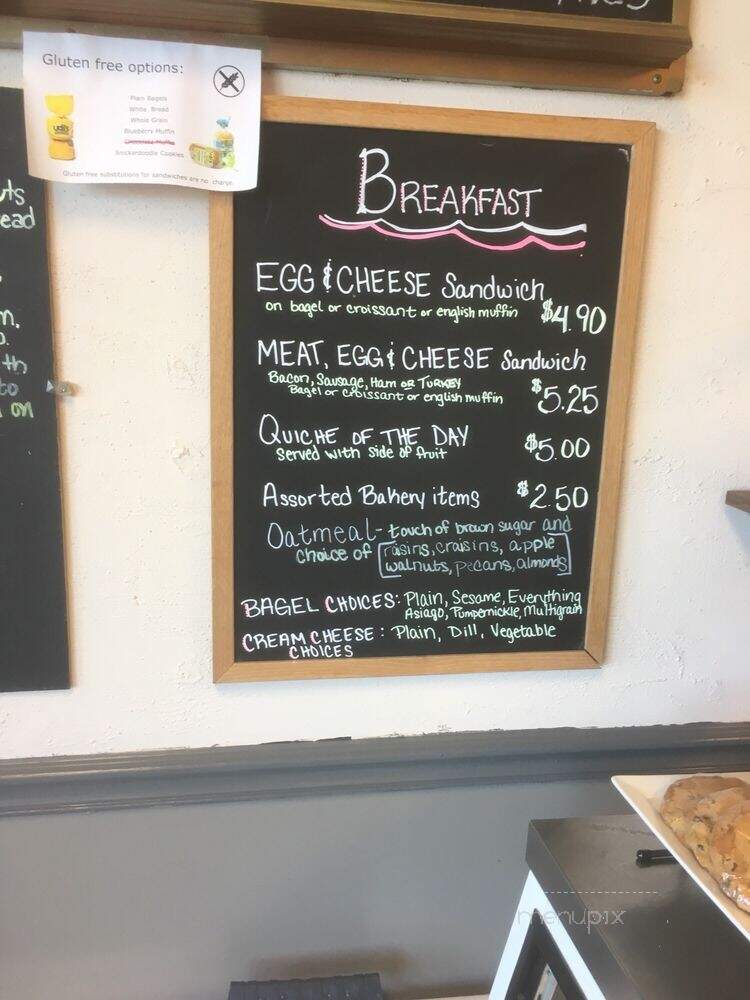 Gluten free options:
Plain Bagels
White Bread
Whole Grain
Blueberry Muffin
Snickerdoodle Cookies
Gluten free substitutions for sandwiches are no charge.
udi's
ead
m.
th
to
on
BREAKFAST
EGG & CHEESE Sandwich
on bagel or croissant or english muffin $4.90
MEAT, EGG & CHEESE Sandwich
Bacon, Sausage, Ham OR TURKEY
Bagel or croissant or english muffin $5.25
QUICHE OF THE DAY $5.00
Served with side of fruit
Assorted Bakery items $2.50
Oatmeal - touch of brown sugar and
choice of raisins, craisins, apple
walnuts, pecans, almonds
BAGEL CHOICES: Plain, Sesame, Everything
Asiago, Pumpernickle, Multigrain
CREAM CHEESE: Plain, Dill, Vegetable
CHOICES
menupix